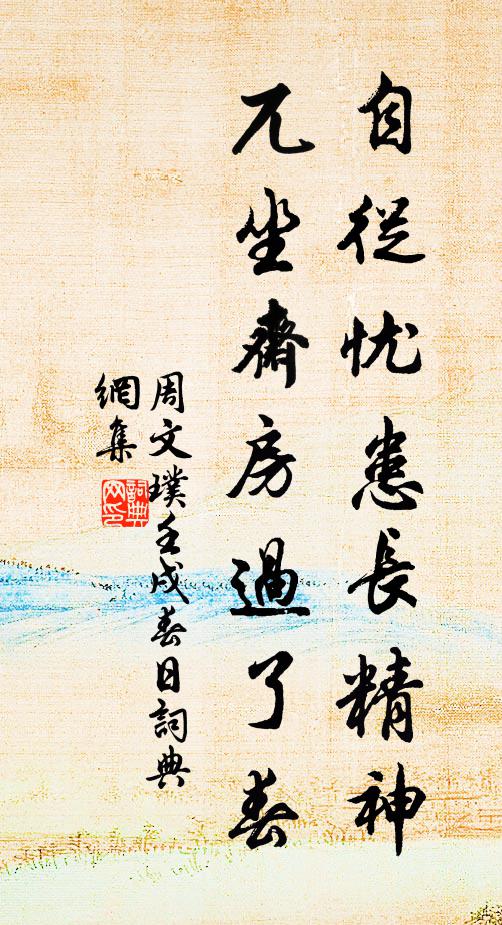 自從忧患長精神
兀坐齋房過了春
周文璞壬戌春日詞典
網集
詞典
网印